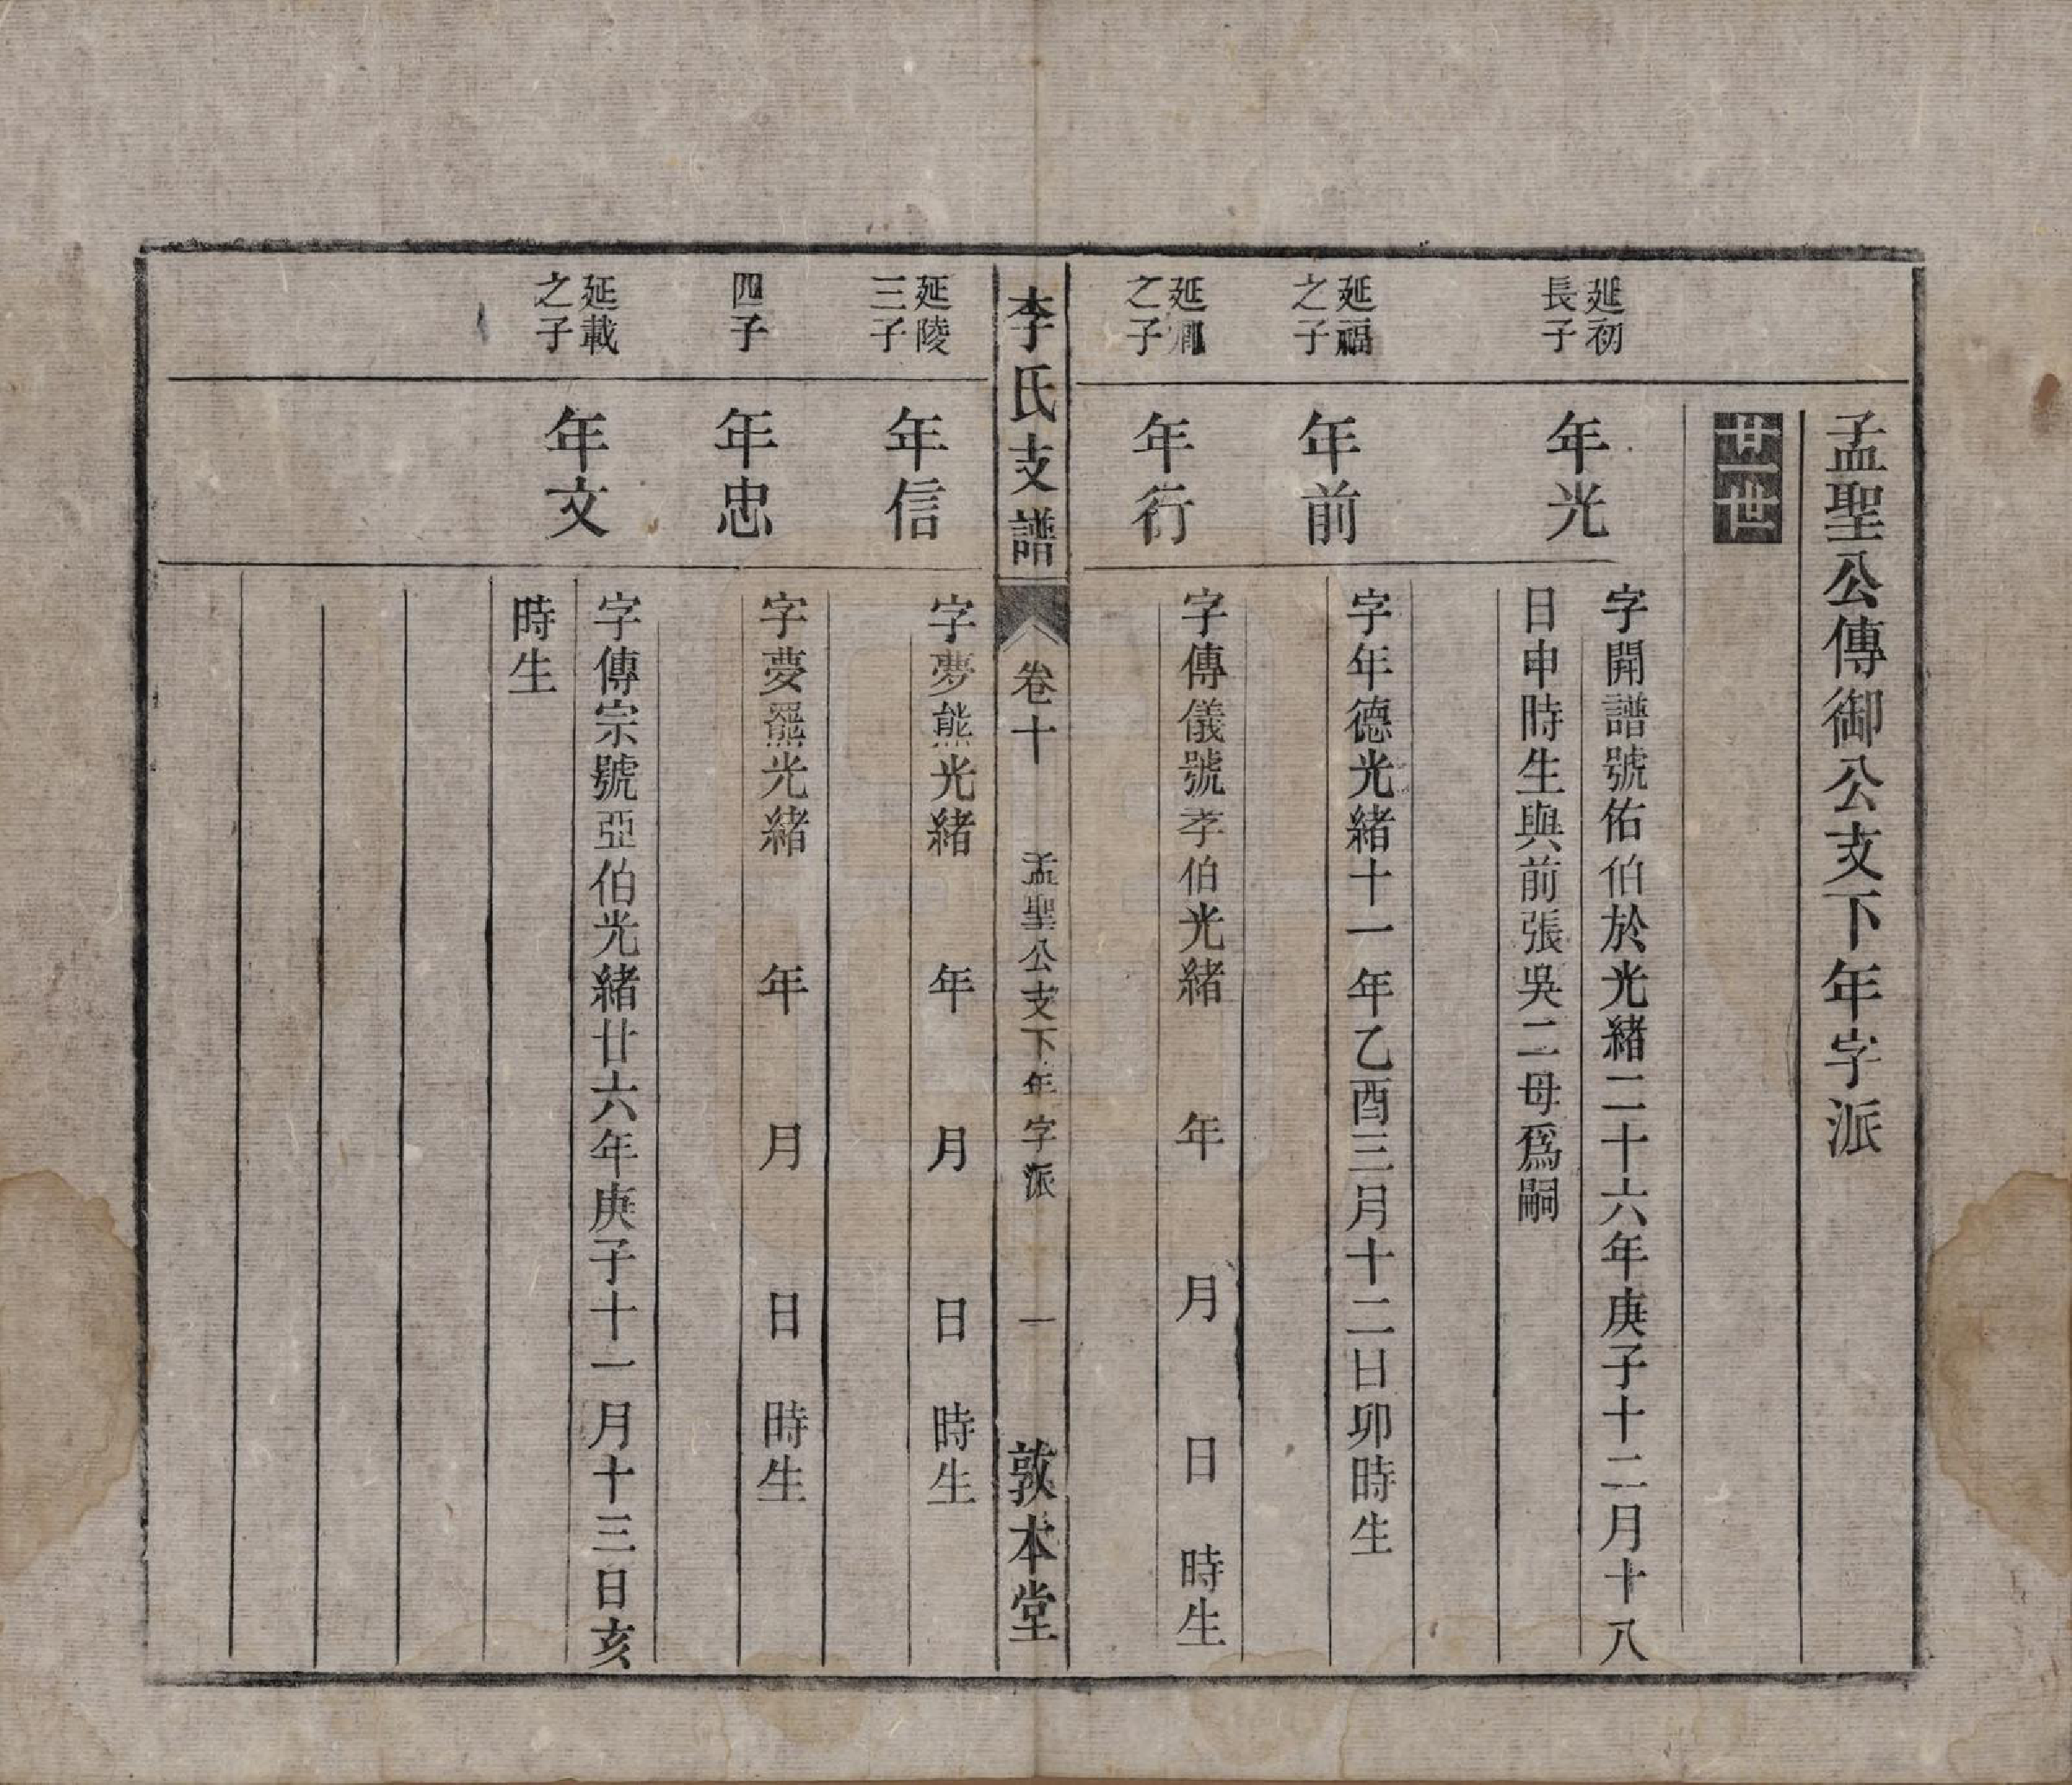 孟聖公傳御公支下年字派
廿一世
延初
長子
年光
字開譜號佑伯於光緒二十六年庚子十二月十八
日申時生與前張吳二母爲嗣
延福
之子
年前
字年德光緒十一年乙酉三月十二日卯時生
延
之子
年衍
字傳儀號孝伯光緒 年 月 日 時生
李氏支譜 卷十 孟聖公支下年字派 一 敦本堂
延陵
三子
年信
字夢熊光緒 年 月 日 時生
四子
年忠
字夢羆光緒 年 月 日 時生
延載
之子
年文
字傳宗號亞伯光緒廿六年庚子十一月十三日亥
時生